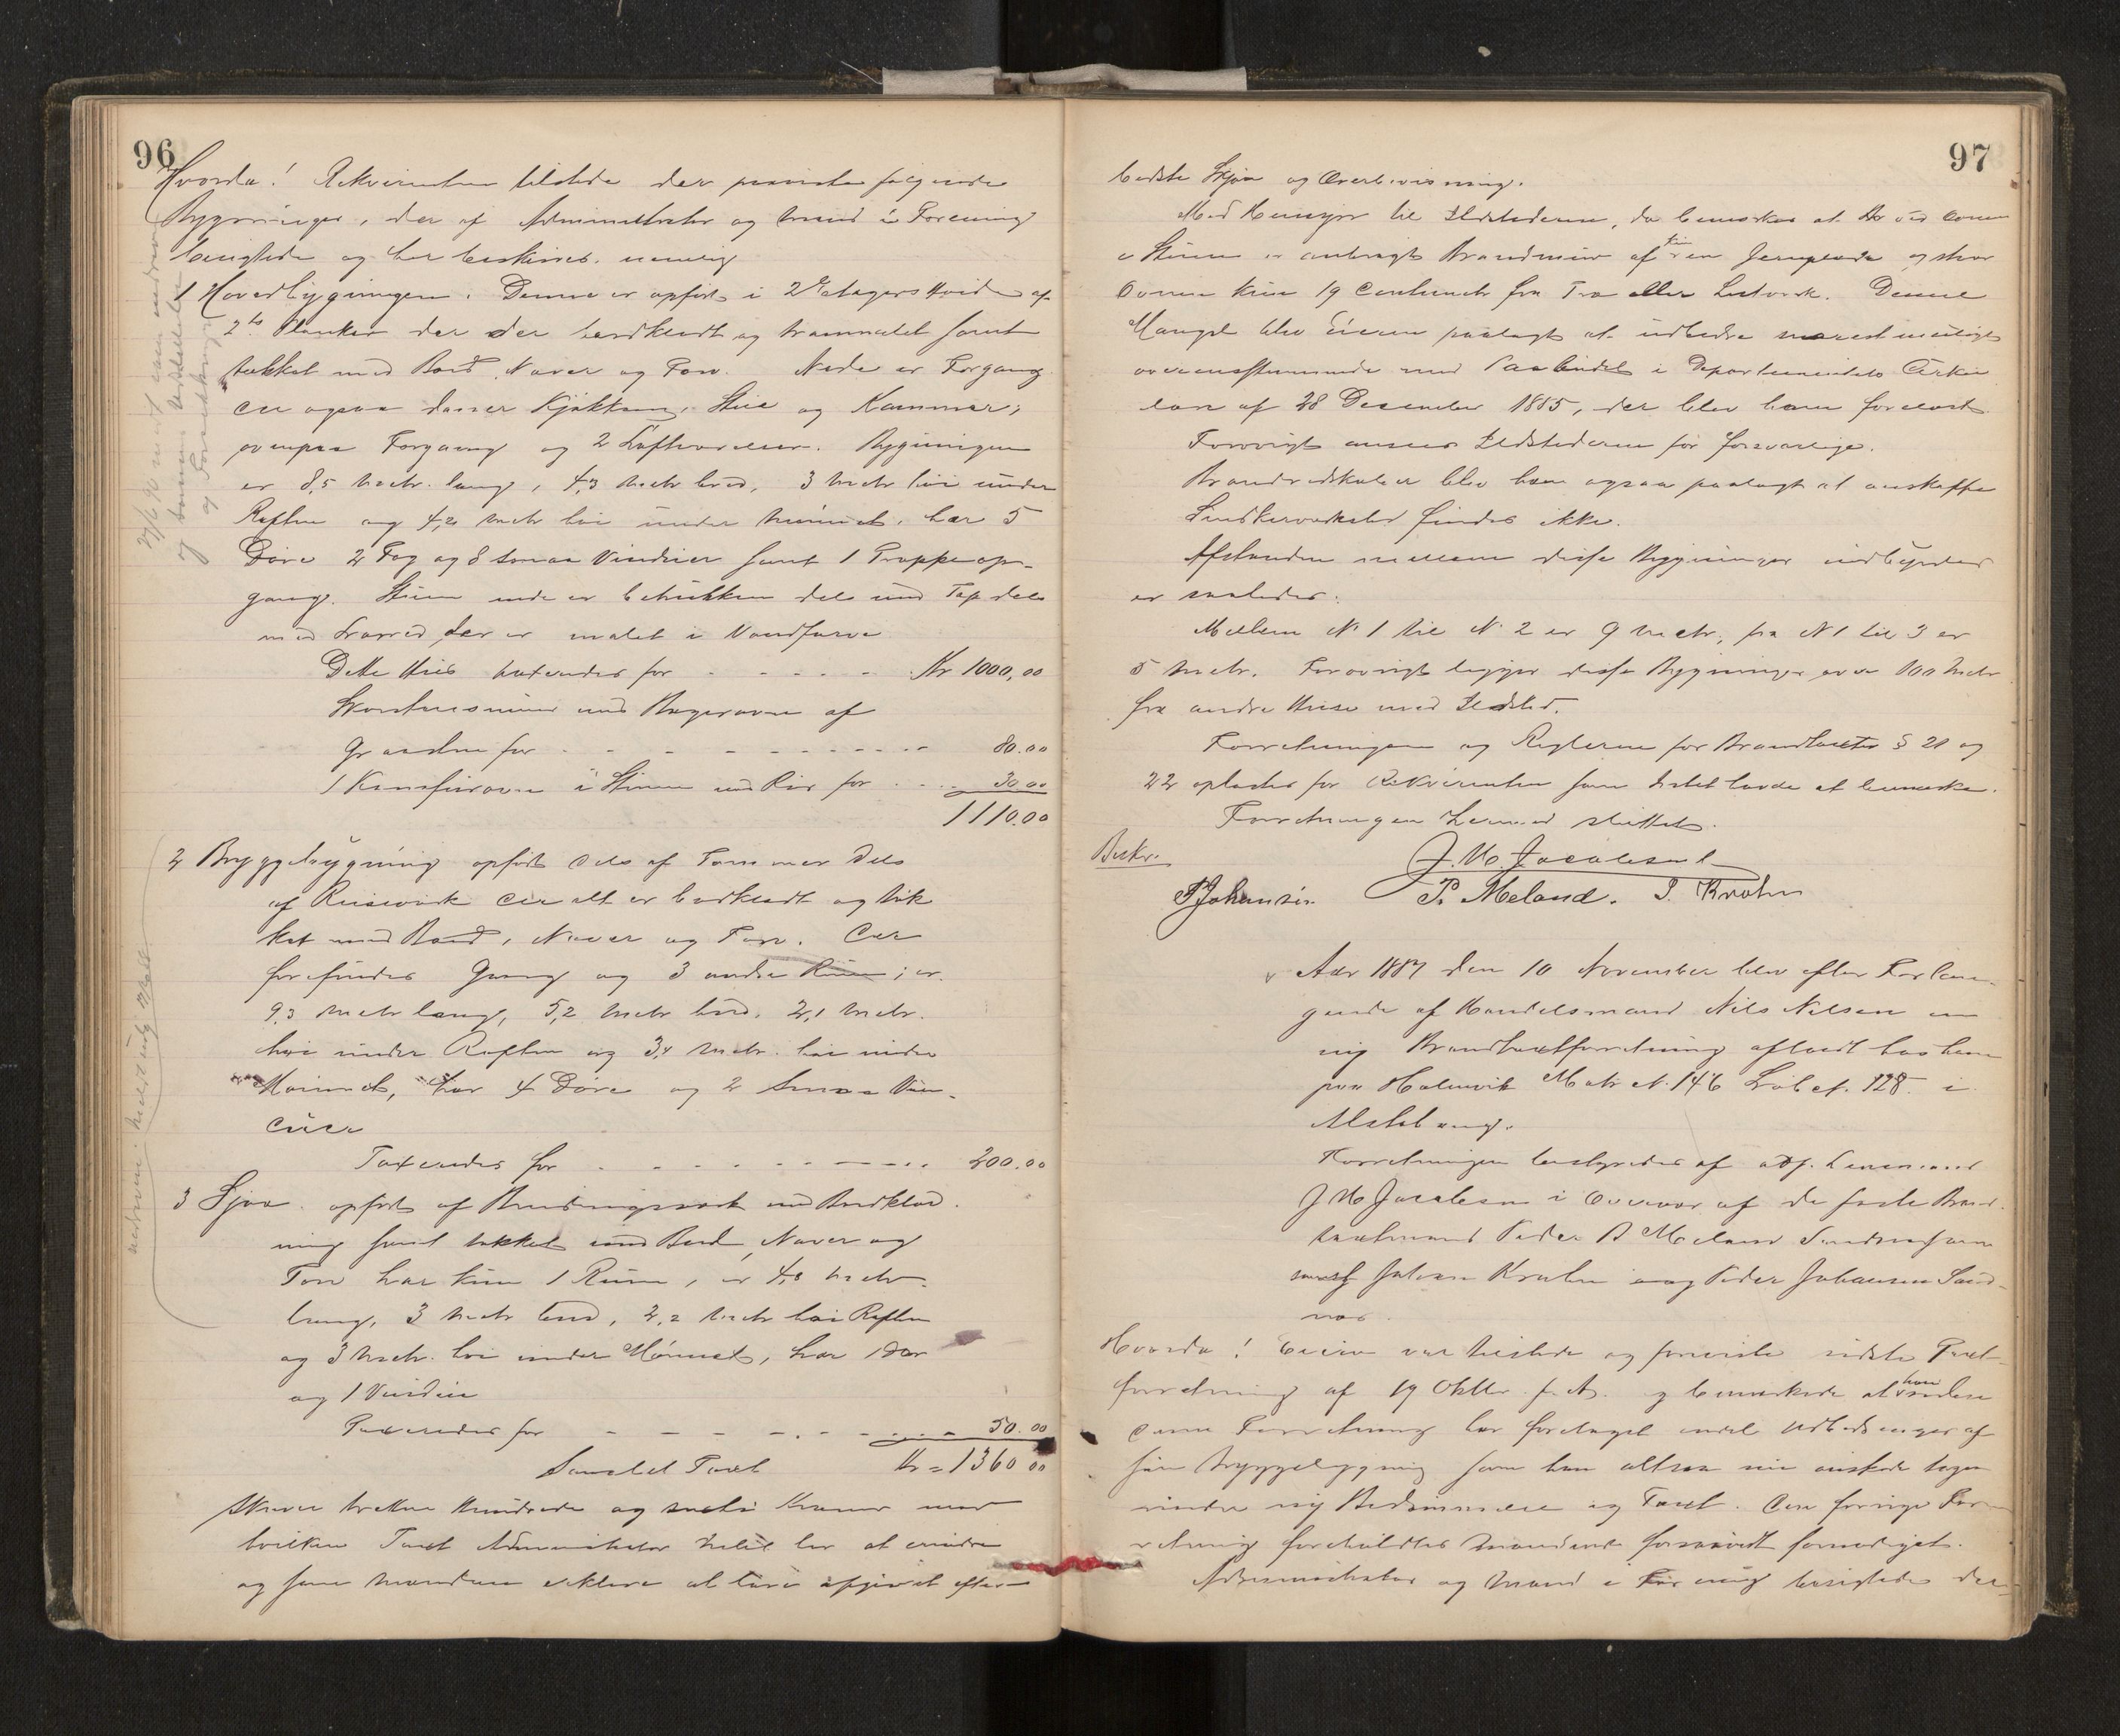 96
Hvorda! Rekvirenten tilstede der paaviste følgende
Bygninger, der af Administrator og Mænd i Forening
besigtedes og her beskrives, nemlig
1 Hovedbygningen. Denne er opført i 2 Etagers Høide af
2" Planker der er bordklædt og        samt
tækket med Bord, Næver og Torv. Nede er Forgang
der ogsaa danner Kjøkken, Stue og Kammer;
ovenpaa Forgang og 2 Loftsværelser. Bygningen
er 8,5 Metr. lang, 4,3 Metr bred, 3 Metr høi under
Raften og 4,2 Metr høi under Mønnet, har 5
Døre 2 Fag og 8 smaa Vinduer samt 1 Trappeop-
gang. Stuen        er betrukken dels med Tap dels
med Lærred der er malet i Vandfarve
Dette Hus taxeredes for - - - - - Kr 1000,00
Skorstensmuur med Bagerovn af
Graasten for - - - - - - - - 80.00
1 Komfurovn i Stuen med Rør for - - - 30.00
1110.00
2 Bryggebygning opført dels af Tømmer dels
af Reisværk der alt er bordklædt og tæk
ket med Bord, Næver og Torv. Der
forefindes Gang og 3 andre Rum; er
9,3 Metr lang, 5,2 Metr bred, 2,1 Metr.
høi under Raften og 3,4 Metr. høi under
Mønnet, har 4 Døre og 2 smaa Vin-
duer
Taxeredes for - - - - - - - 200.00
3 Sjaa. opført af Bindingsværk med Bordklæd
ning samt tækket med Bord, Næver og
Torv har kun 1 Rum, er 4,8 Metr
lang, 3 Metr bred, 2,2 Metr høi Raften
og 3 Metr. høi under Mønnet, har 1 Dør
og 1 Vindue
Taxeredes for - - - - - - - 50.00
Samlet Taxt Kr = 1360 00
skriver tretten Hundrede og seksti Kroner mod
hvilken Taxt Administrator Intet har at erindre
og som Mændene erklære at være afgivet efter
97
bedste Skjøn og Overbevisning.
Med Hensyn til Ildstederne, da bemærkes at der ved Ovnen
i Stuen er anbragt Brandmuur af        en Jernplade og staar
Ovnen kun 19 Centimetr fra Træ eller Listværk. Denne
Mangel blev Eieren paalagt at udbedre snarest muligt
overensstemmende med Paabudet i Departementets Cirku
lære af 28 December 1885, der blev ham forelæst.
Forøvrigt ansees Ildstederne for forsvarlige.
Brandredskaber blev ham ogsaa paalagt at anskaffe
       findes ikke.
Afstanden mellem disse Bygninger indbyrdes
er saaledes:
Mellem N 1 til N 2 er 9 Metr, fra N 1 til 3 er
5 Metr. Forøvrigt ligger disse Bygninger over 100 Metr
fra andre Huse med Ildsted.
Forretningen og Reglerne for Brandtaxter § 21 og
22 oplæstes for Rekvirenten som Intet havde at bemærke.
Forretningen hermed sluttet.
J. M. Jacobsen
Beskr.
PJohansen P. Meland. J. Krohn
Aar 1887 den 10 November blev efter Forlan-
gende af Handelsmand Nils Nilsen en
ny Brandtaxtforretning afholdt hos ham
paa Holmvik Matr N. 146 Løb N. 128 i
Alstahaug.
Forretningen bestyredes af        Lensmand
J M Jacobsen i Overvær af de faste Brand
taxtmænd Peder        Meland        
       Johan Krohn og Peder Johansen Sand-
næs.
Hvorda! Eieren var tilstede og foreviste sidste Taxt-
forretning af 19 Oktbr f. A. og bemærkede at han siden
denne Forretning har foretaget endel Udbedringer af
sin Bryggebygning som han altsaa nu ønskede tagen
under ny Bedømmelse og Taxt. Den forrige For
retning foreholdtes Mændene forsaavidt fornødiget.
Administrator og Mænd i Forening besigtede der-